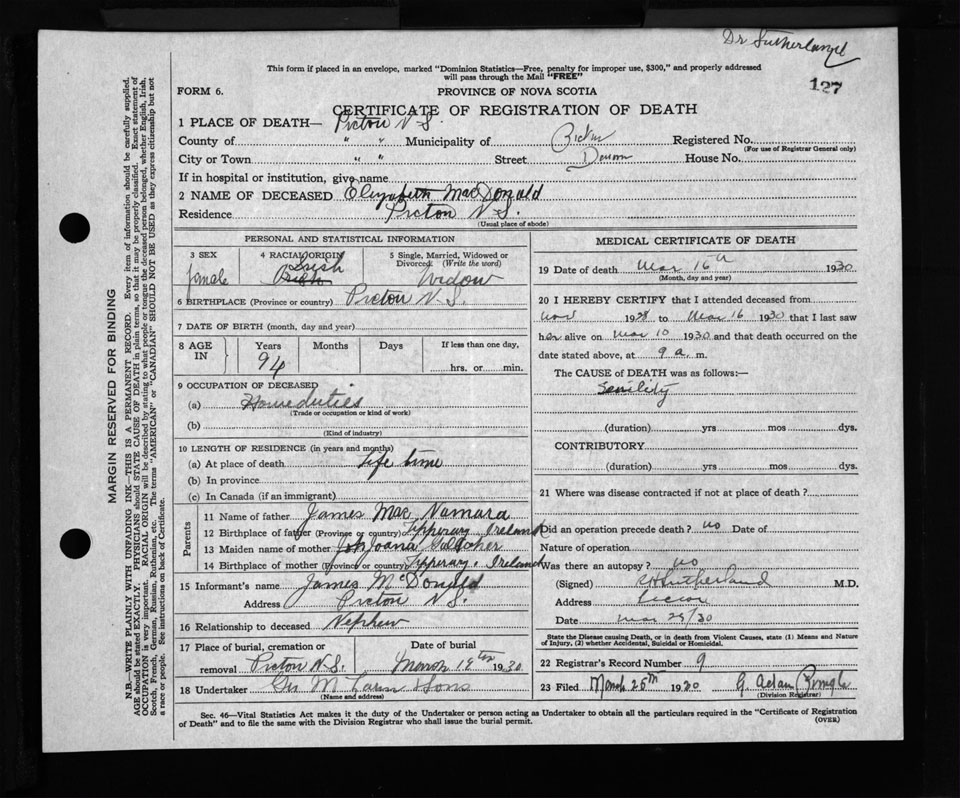 Dr Sutherland
This form if placed in an envelope, marked "Dominion Statistics—Free, penalty for improper use, $300," and properly addressed
will pass through the Mail "FREE"
127
FORM 6.
PROVINCE OF NOVA SCOTIA
CERTIFICATE OF REGISTRATION OF DEATH
1 PLACE OF DEATH— Pictou N.S.
County of " " Municipality of Pictou Registered No.
(For use of Registrar General only)
City or Town " " Street House No.
If in hospital or institution, give name
2 NAME OF DECEASED Elizabeth MacDonald
Residence Pictou N.S.
(Usual place of abode)
PERSONAL AND STATISTICAL INFORMATION
3 SEX
female
4 RACIAL ORIGIN
Irish
5 Single, Married, Widowed or
Divorced (Write the word)
Widow
6 BIRTHPLACE (Province or country) Pictou N.S.
7 DATE OF BIRTH (month, day and year)
8 AGE
IN
Years
94
Months
Days
If less than one day,
hrs. or min.
9 OCCUPATION OF DECEASED
(a) Home duties
(Trade or occupation or kind of work)
(b)
(Kind of industry)
10 LENGTH OF RESIDENCE (in years and months)
(a) At place of death life time
(b) In province
(c) In Canada (if an immigrant)
Parents
11 Name of father James Mac Namara
12 Birthplace of father (Province or country) Tipperary Ireland
13 Maiden name of mother Johoana
14 Birthplace of mother (Province or country) Tipperary, Ireland
15 Informant's name James McDonald
Address Pictou N.S.
16 Relationship to deceased Nephew
17 Place of burial, cremation or
removal Pictou N.S.
Date of burial
March 18th 1930
18 Undertaker Sons
(Name and address)
MEDICAL CERTIFICATE OF DEATH
19 Date of death Mar 16th 1930
(Month, day and year)
20 I HEREBY CERTIFY that I attended deceased from
Nov 1928 to Mar 16 1930 that I last saw
her alive on Mar 10 1930 and that death occurred on the
date stated above, at 9 a. m.
The CAUSE of DEATH was as follows:—
Senility
(duration) yrs mos dys.
CONTRIBUTORY
(duration) yrs mos dys.
21 Where was disease contracted if not at place of death?
Did an operation precede death? no Date of
Nature of operation
Was there an autopsy? no
(Signed) Sutherland M.D.
Address Pictou
Date Mar 29/30
State the Disease causing Death, or in death from Violent Causes, state (1) Means and Nature
of Injury, (2) whether Accidental, Suicidal or Homicidal.
22 Registrar's Record Number 9
23 Filed March 1930
(Division Registrar)
Sec. 46—Vital Statistics Act makes it the duty of the Undertaker or person acting as Undertaker to obtain all the particulars required in the "Certificate of Registration
of Death" and to file the same with the Division Registrar who shall issue the burial permit.
(OVER)
MARGIN RESERVED FOR BINDING
N.B.—WRITE PLAINLY WITH UNFADING INK—THIS IS A PERMANENT RECORD. Every item of information should be carefully supplied.
AGE should be stated EXACTLY. PHYSICIANS should STATE CAUSE OF DEATH in plain terms, so that it may be properly classified. Exact statement of
OCCUPATION is very important. RACIAL ORIGIN will be described by stating to what people or tongue the deceased person belonged, whether English, Irish,
Scotch, French, German, Russian, Ruthenian, etc. The terms "AMERICAN" or "CANADIAN" SHOULD NOT BE USED as they express citizenship but not
a race or people. See instructions on back of Certificate.